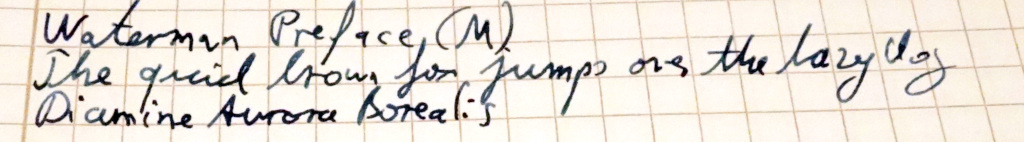 Waterman Preface (M)
The quick brown fox jumps over the lazy dog
Diamine Aurora Borealis